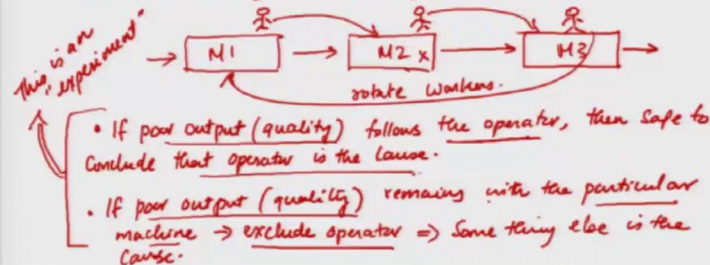 This is an
"experiment"
M1 M2 x M3
rotate workers.
• If poor output (quality) follows the operator, then safe to
Conclude that operator is the Cause.
• If poor output (quality) remains with the particular
machine → exclude operator ⇒ Some thing else is the
Cause.